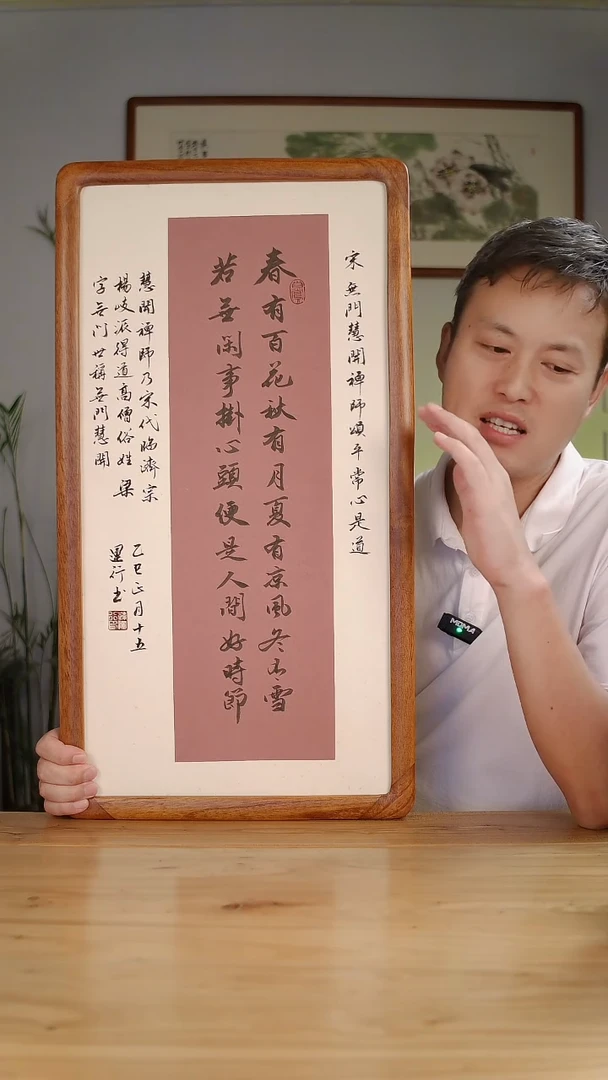 宋 無門慧開禪師頌平常心是道
春有百花秋有月夏有涼風冬有雪
若無閑事掛心頭便是人間好時節
慧開禪師乃宋代臨濟宗
楊岐派得道高僧俗姓梁
字無門世稱無門慧開
乙巳正月十五
行书
MOMA